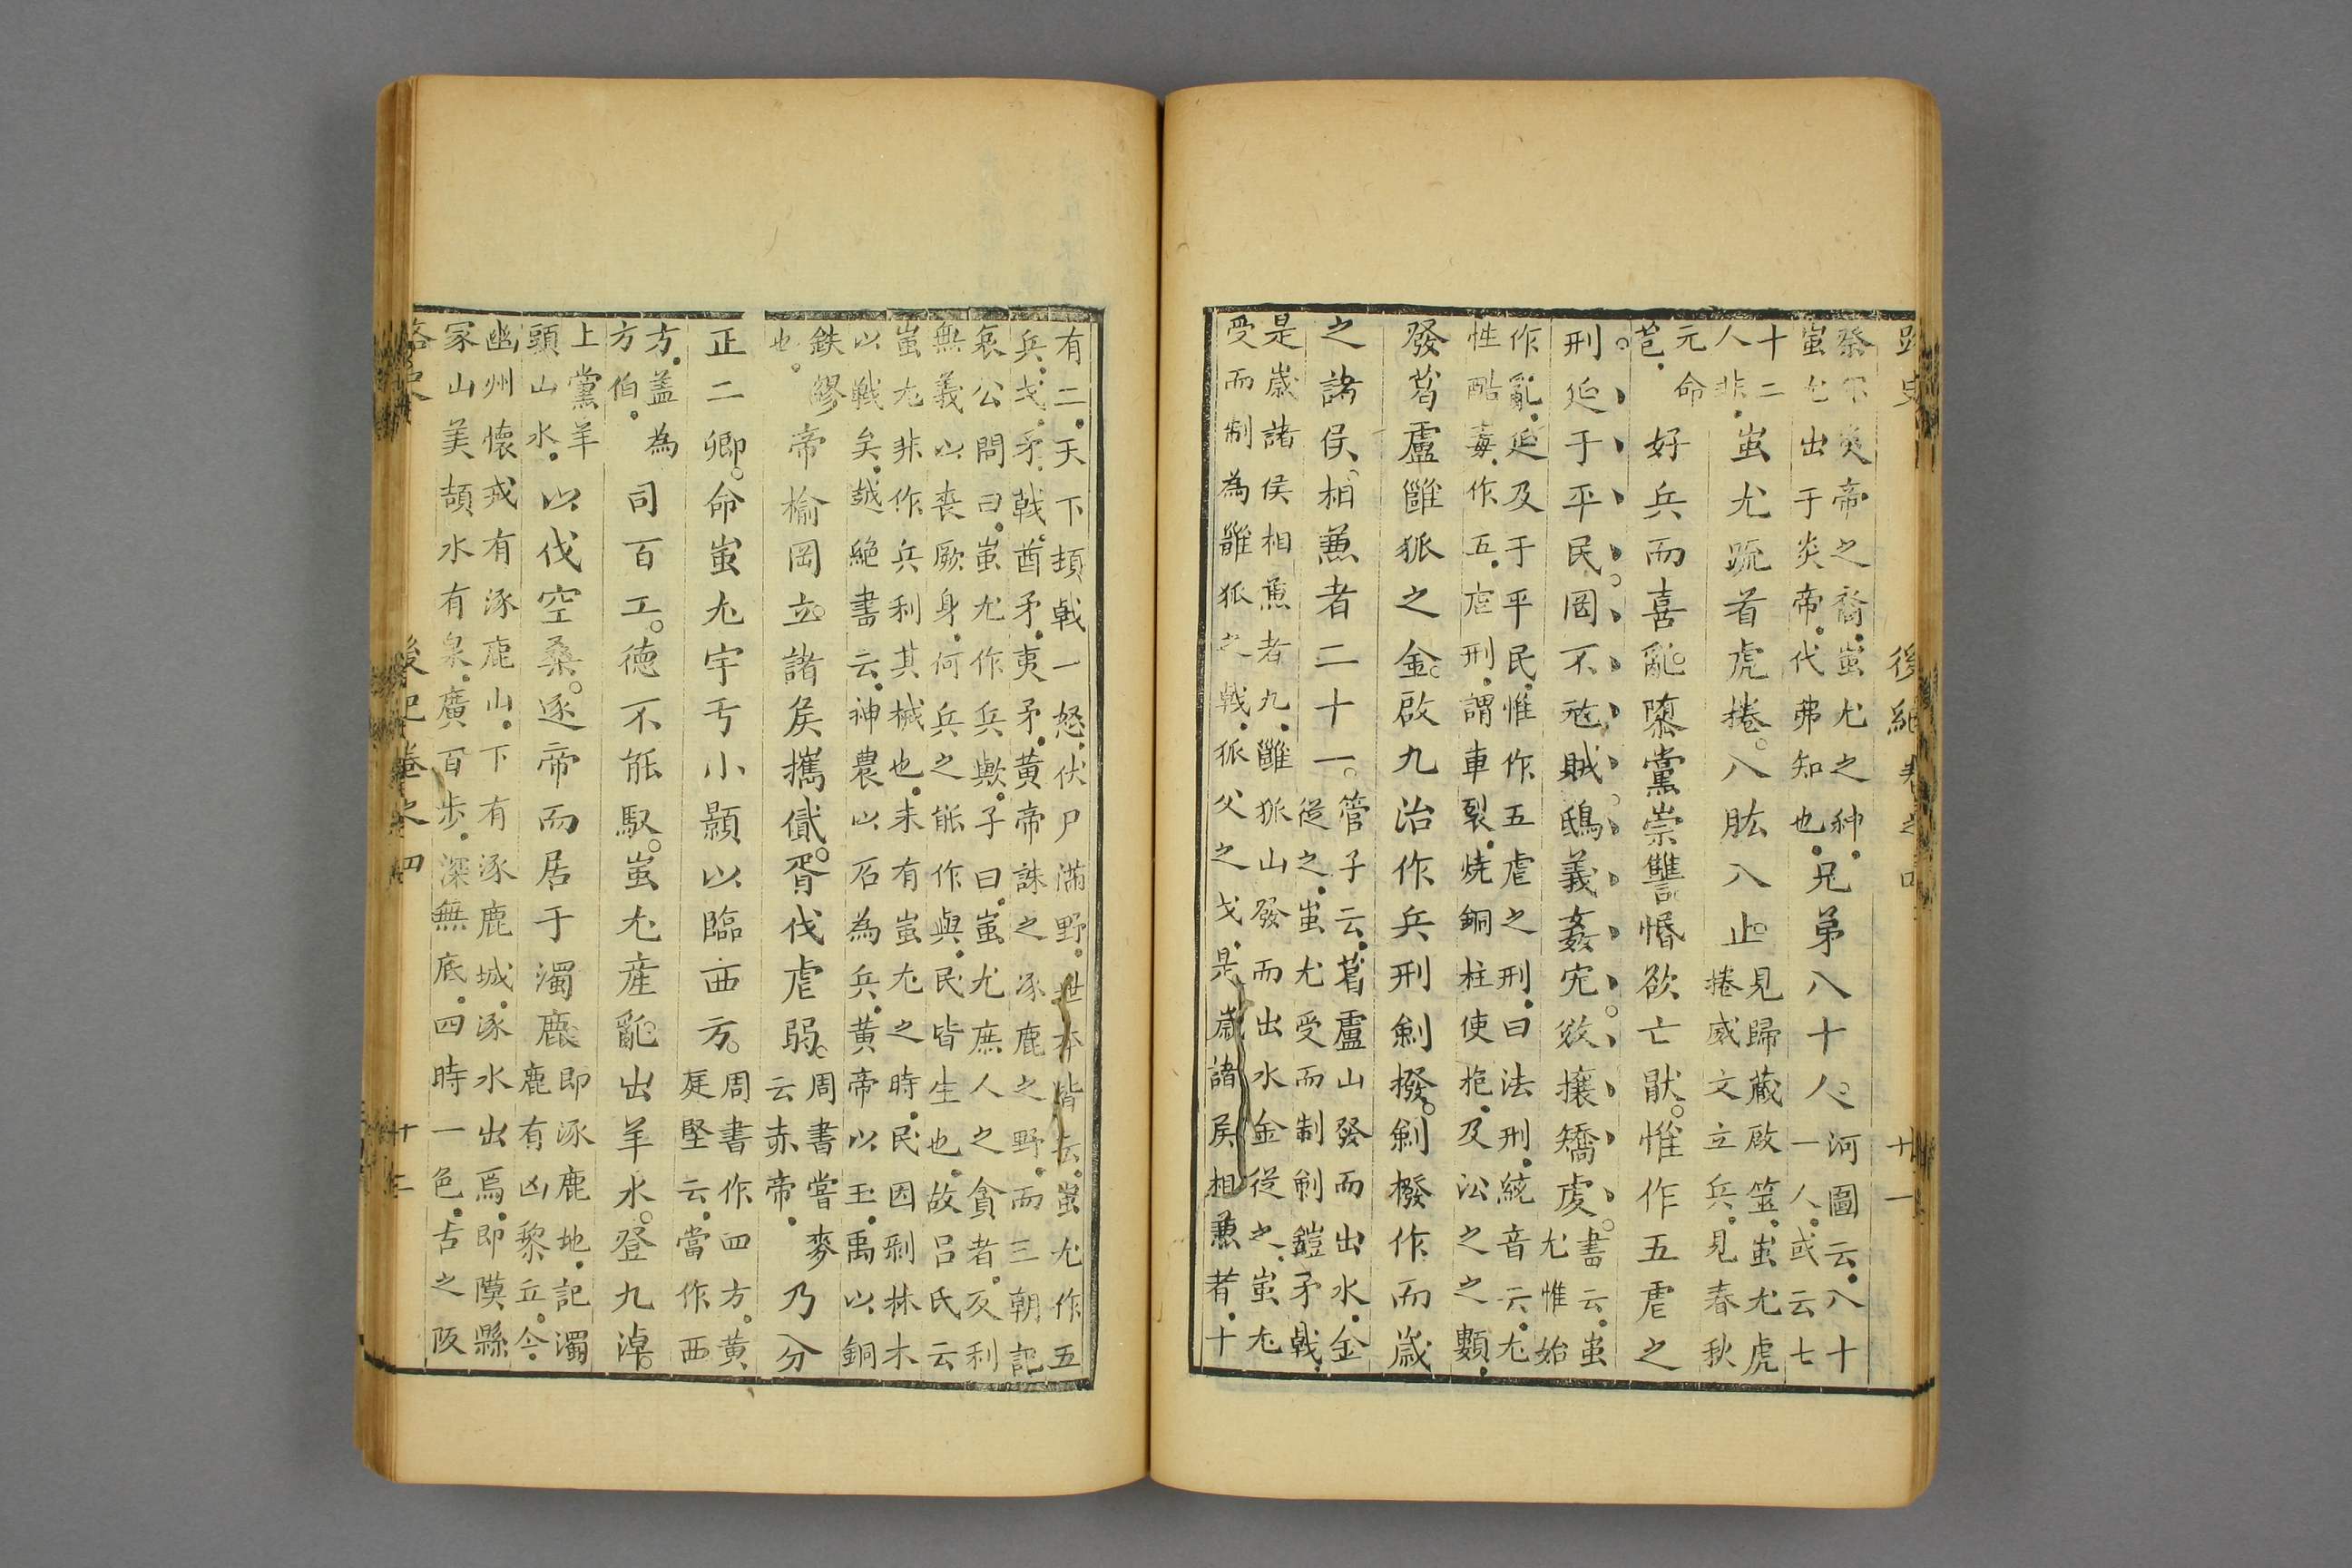 路史 後紀卷之四 十一
參不炎帝之裔蚩尤之紳兄弟八十人河圖云八十
蚩尤出于炎帝代弗知也一人或云七
十二
人非蚩尤疏首虎捲八肱八止見歸藏啟筮蚩尤虎
捲威文立兵見春秋
元命
苞好兵而喜亂隳黨崇讐惛欲亡猒惟作五虐之
刑延于平民罔不寇賊鴟義姦宄敓攘矯虔書云蚩
尤惟始
作亂延及于平民惟作五虐之刑曰法刑統音云尤
性酷毒作五虐刑謂車裂燒銅柱使抱及㳂之之數
發葛盧雝狐之金啟九治作兵刑劍撥劍撥作而歲
之諸侯相兼者二十一管子云葛盧山發而出水金
從之蚩尤受而制劍鎧矛戟
是歲諸侯相兼者九雝狐山發而出水金從之蚩尤
受而制為雝狐之戟狐父之戈是歲諸侯相兼者十
有二天下頓戟一怒伏尸滿野世本皆云蚩尤作五
兵戈矛戟酋矛夷矛黃帝誅之涿鹿之野而三朝記
哀公問曰蚩尤作兵歟子曰蚩尤庶人之貪者反利
無義以喪厥身何兵之能作與民皆生也故呂氏云
蚩尤非作兵利其械也未有蚩尤之時民因剥林木
以戰矣越絶書云神農以石為兵黃帝以玉禹以銅
鉄繆
也帝榆罔立諸侯攜貳胥伐虐弱周書嘗麥
云赤帝乃分
正二卿命蚩尤宇于小顥以臨西方周書作四方黃
庭堅云當作西
方蓋為
方伯司百工德不能馭蚩尤產亂出羊水登九淖
上黨羊
頭山水以伐空桑逐帝而居于濁鹿即涿鹿地記濁
鹿有凶黎丘今
幽州懷戎有涿鹿山下有涿鹿城涿水出焉即隩縣
冢山美頡水有泉廣百步深無底四時一色古之阪
路史 後紀卷之四 十二